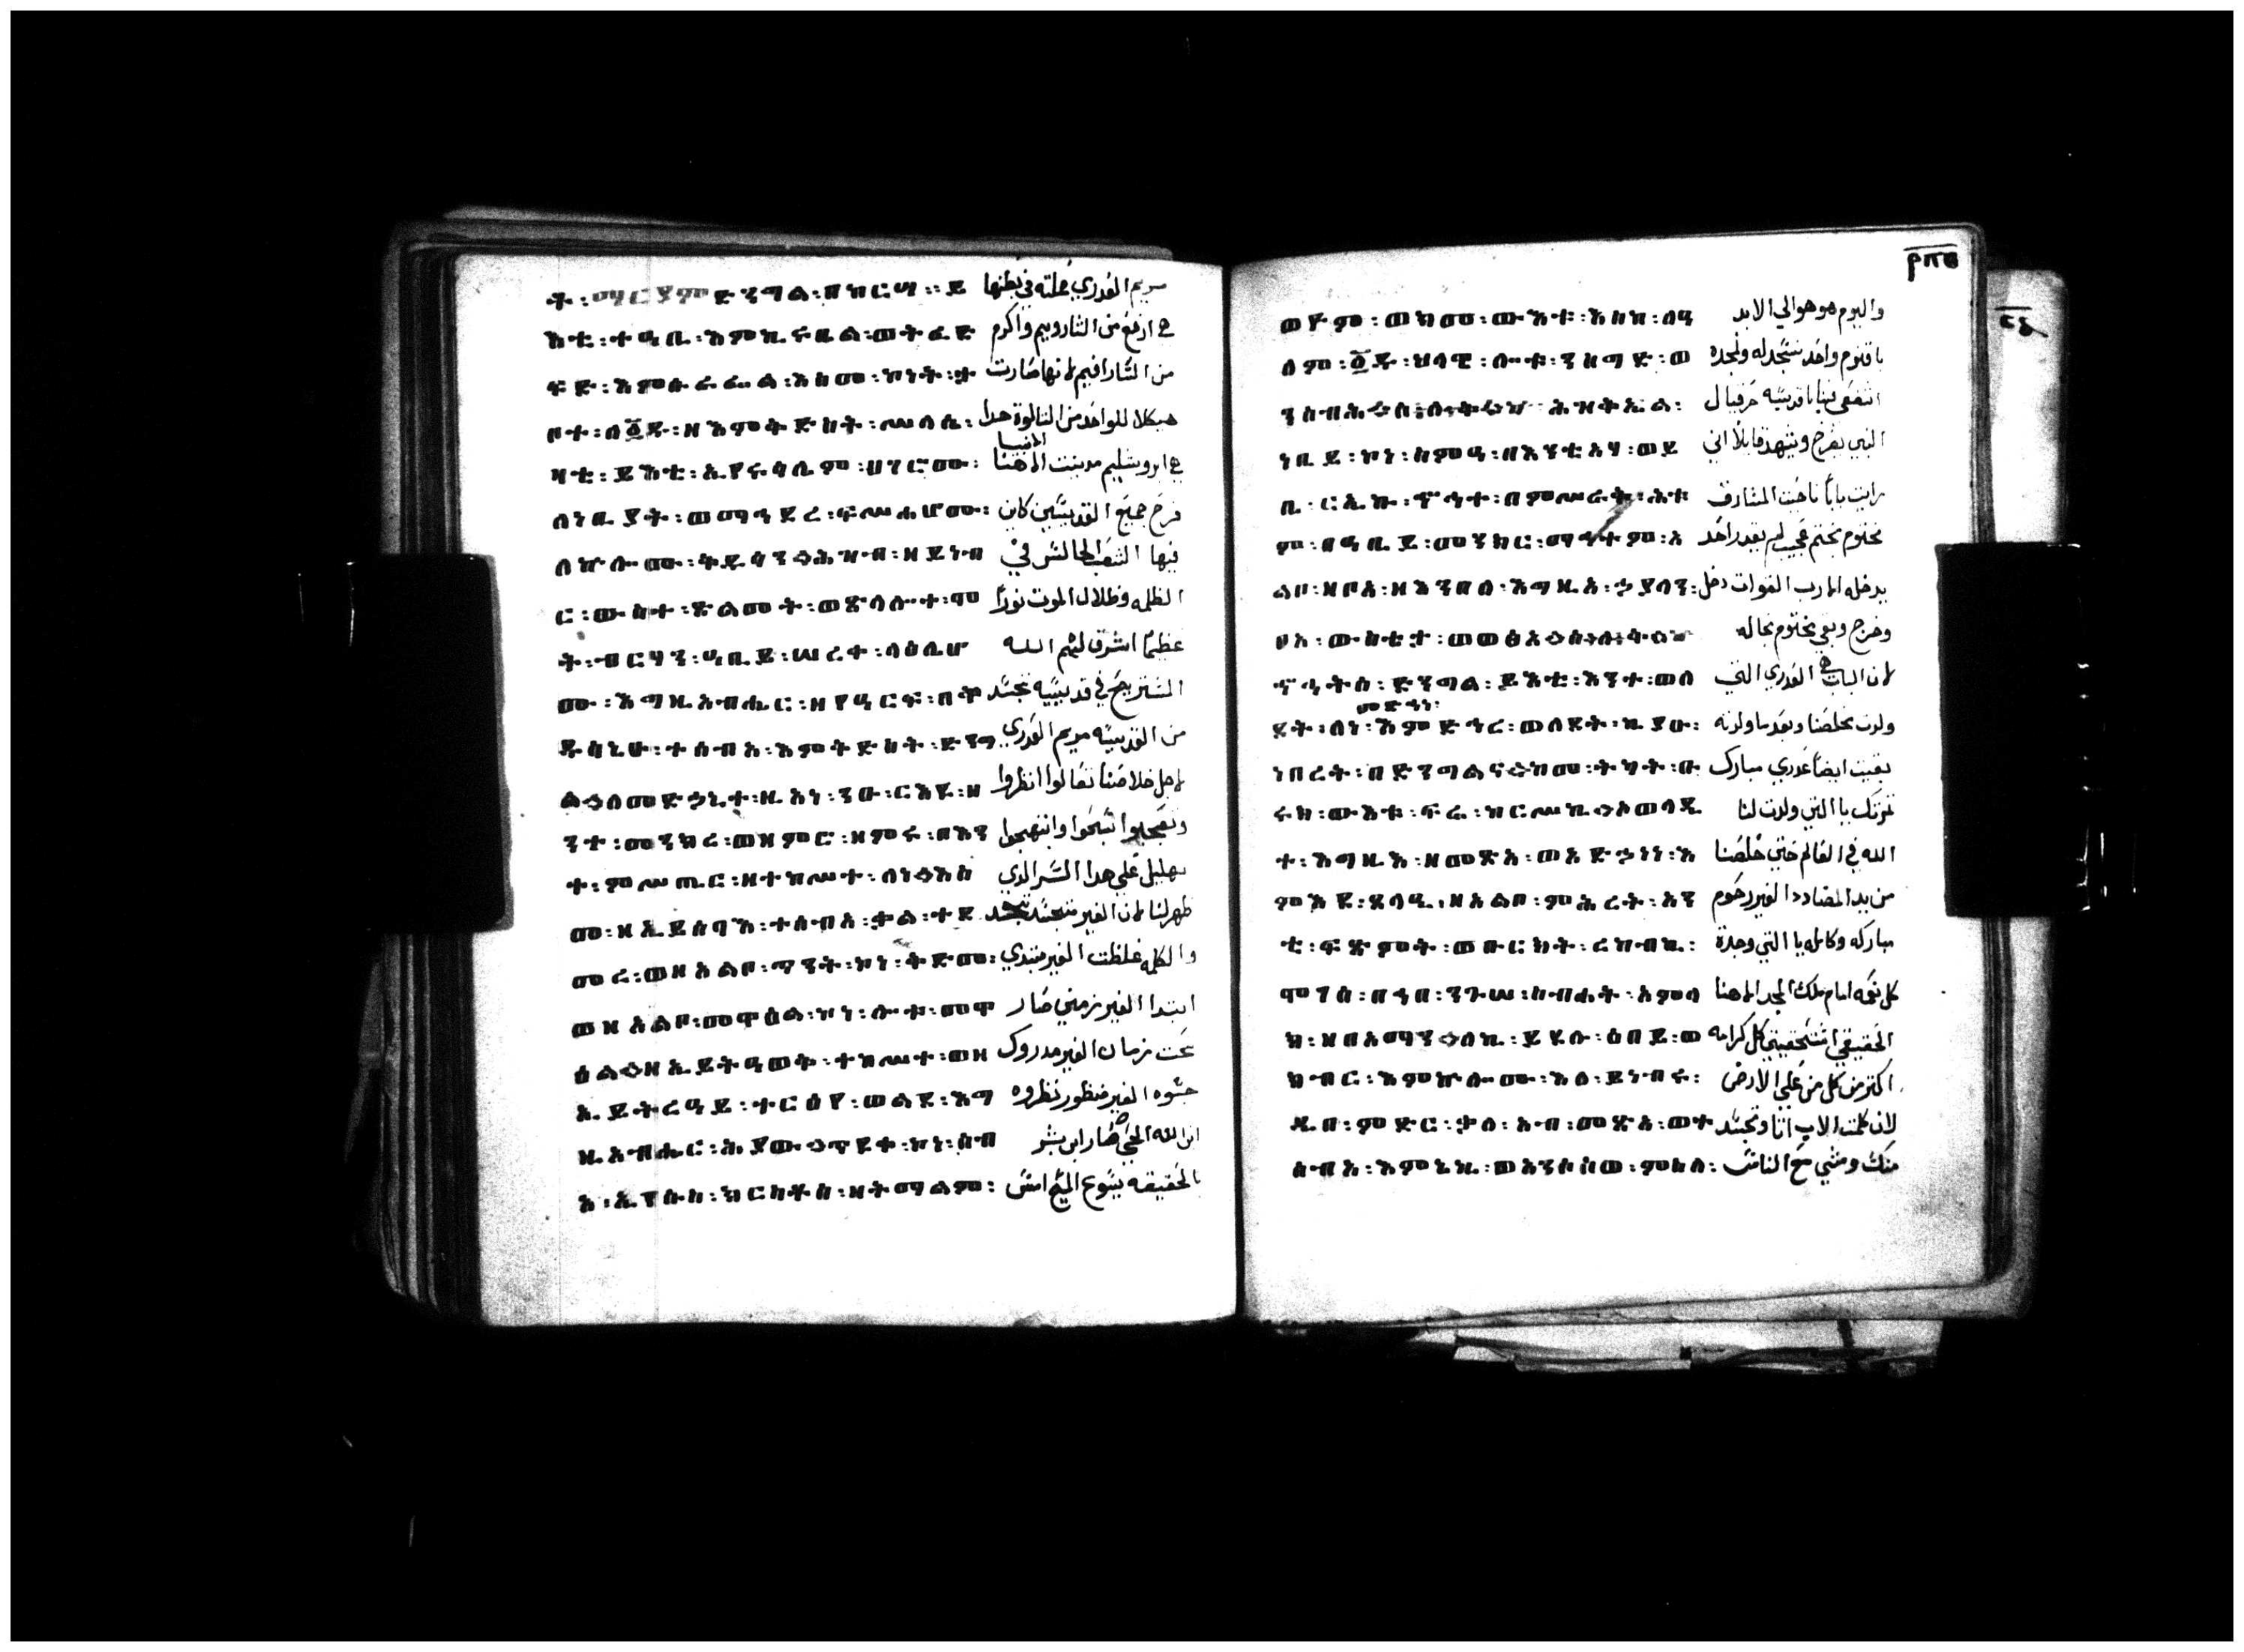 ት : ማርያም ድንግል : በከርሣ :: ይ مريم العدري حملته في بطنها
እቲ : ተዓቢ : እምኪሩቤል : ወትፈድ هي ارفع من الشاروبيم واكرم
ፍድ : እምሱራፌል : እስመ : ኮነት : ታ من السارافيم لانها صارت
ቦተ : ለ፩ዱ : ዘእምቅድስት : ሥላሴ : هيكلا للواحد من الثالوث هدا
ዛቲ : ይእቲ : ኢየሩሳሌም : ሀገሮሙ : هي ايروشليم مدينت الاهنا الانبيا
ለነቢያት : ወማኅደረ : ፍሥሐሆሙ : فرح جميع القديسين كاين
ለኵሎሙ : ቅዱሳን ሕዝብ : ዘይነብ فيها الشعب الجالس في
ር : ውስተ : ጽልመት : ወጽላሎተ : ሞ الظلمه وظلال الموت نوراً
ት : ብርሃን : ዓቢይ : ሠረቀ : ላዕሌሆ عظيماً اشرق لهم الله
ሙ : እግዚአብሔር : ዘየዓርፍ : በቅ المستريح في قديسيه تجسد
ዱሳኒሁ : ተሰብአ : እምቅድስት : ድንግ من القديسه مريم العدري
ል በእንተ መድኃኒተ : ዚአነ : ንዑ : ርእዩ : ዘ لاجل خلاصنا تعالوا انظروا
ንተ : መንክረ : ወዘምር : ዘምሩ : በእን وتعجبوا سبحوا وابتهجوا
ተ : ምሥጢር : ዘተከሥተ : ለነ እስ بهليل علي هدا السر الدي
መ : ዘኢይሰባእ : ተሰብአ : ቃል : ተደ ظهر لنا لان الغير متجسد تجسد
መረ : ወዘአልቦ : ጥንት : ኮነ : ቅድመ : والكلمه غلظت الغير مبتدي
ወዘአልቦ : መዋዕል : ኮነ : ሎቱ : መዋ ابتدا الغير زمني صار
ዕል ዘኢይትዓወቅ : ተከሥተ : ወዘ تحت زمان الغير مدروك
ኢይትረዓይ : ተርዕየ : ወልደ : እግ جسوه الغير منظور نظروه
ዚአብሔር : ሕያው ጥዩቀ : ኮነ : ሰብ ابن الله الحي صار ابن بشر
እ : ኢየሱስ : ክርስቶስ : ዘትማልም : بالحقيقه يسوع المسيح امس
ዮም : ወክመ : ውእቱ : እስከ : ለዓ واليوم هو هو الي الابد
ለም : ፩ዱ : ህላዌ : ሎቱ : ንሰግድ : ወ باقنوم واحد نسجد له ونمجده
ንሰብሖ ሕዝቅኤል : اشعي نبيا باقديسيه حزقيال
ነቢይ : ኮነ : ስምዓ : በእንቲአሃ : ወይ النبي يصرخ ويشهد قايلاً اني
ቤ : ርኢኩ : ኆኅተ : በምሥራቅ : ሕተ رايت باباً ناحيت المشارق
ም : በዓቢይ : መንክር : ማኅተም : አ مختوم بختم عجيب لم يقدر احد
ልቦ : ዘቦአ : ዘእንበለ : እግዚአ : ኃያላን : يدخله الا رب القوات دخل
ቦአ : ውስቴታ : ወወፅአ وخرج وبقي مختوم بحاله
ኆኅትሰ : ድንግል : ይእቲ : እንተ : ወለ لان الباب هي العدري التي
ደት : ለነ : መድኅነ : እምድኅረ : ወለደት : ኪያሁ : ولدت مخلصنا وبعد ما ولدته
ነበረት : በድንግልና ከመ : ትካት : ቡ بقيت ايضاً عدري مبارك
ሩክ : ውእቱ : ፍሬ : ከርሥኪ ኦ ወላዲ تمرتك يا التي ولدت لنا
ተ : እግዚአ : ዘመጽአ : ወአድኃነነ : እ الله في العالم حتي خلصنا
ምእደ : ጸላዒ : ዘአልቦ : ምሕረት : አን من يد المضادد الغير رحوم
ቲ : ፍጽምት : ወቡርክት : ረከብኪ : مباركه وكامله يا التي وجدة
ሞገሰ : በኀበ : ንጉሠ : ስብሐት : አምላ كل نعمه امام ملك المجد الاهنا
ክ : ዘበአማን ለኪ : ይደሉ : ዕበይ : ወ الحقيقي استحقيتي كل كرامه
ክብር : እምኵሎሙ : እለ : ይነብሩ : اكتر من كل من علي الارض
ዲበ : ምድር : ቃለ : አብ : መጽአ : ወተ لان كلمت الاب اتا وتجسد
ሰብአ : እምኔኪ : ወአንሶሰወ : ምስለ : منك ومشي مع الناس